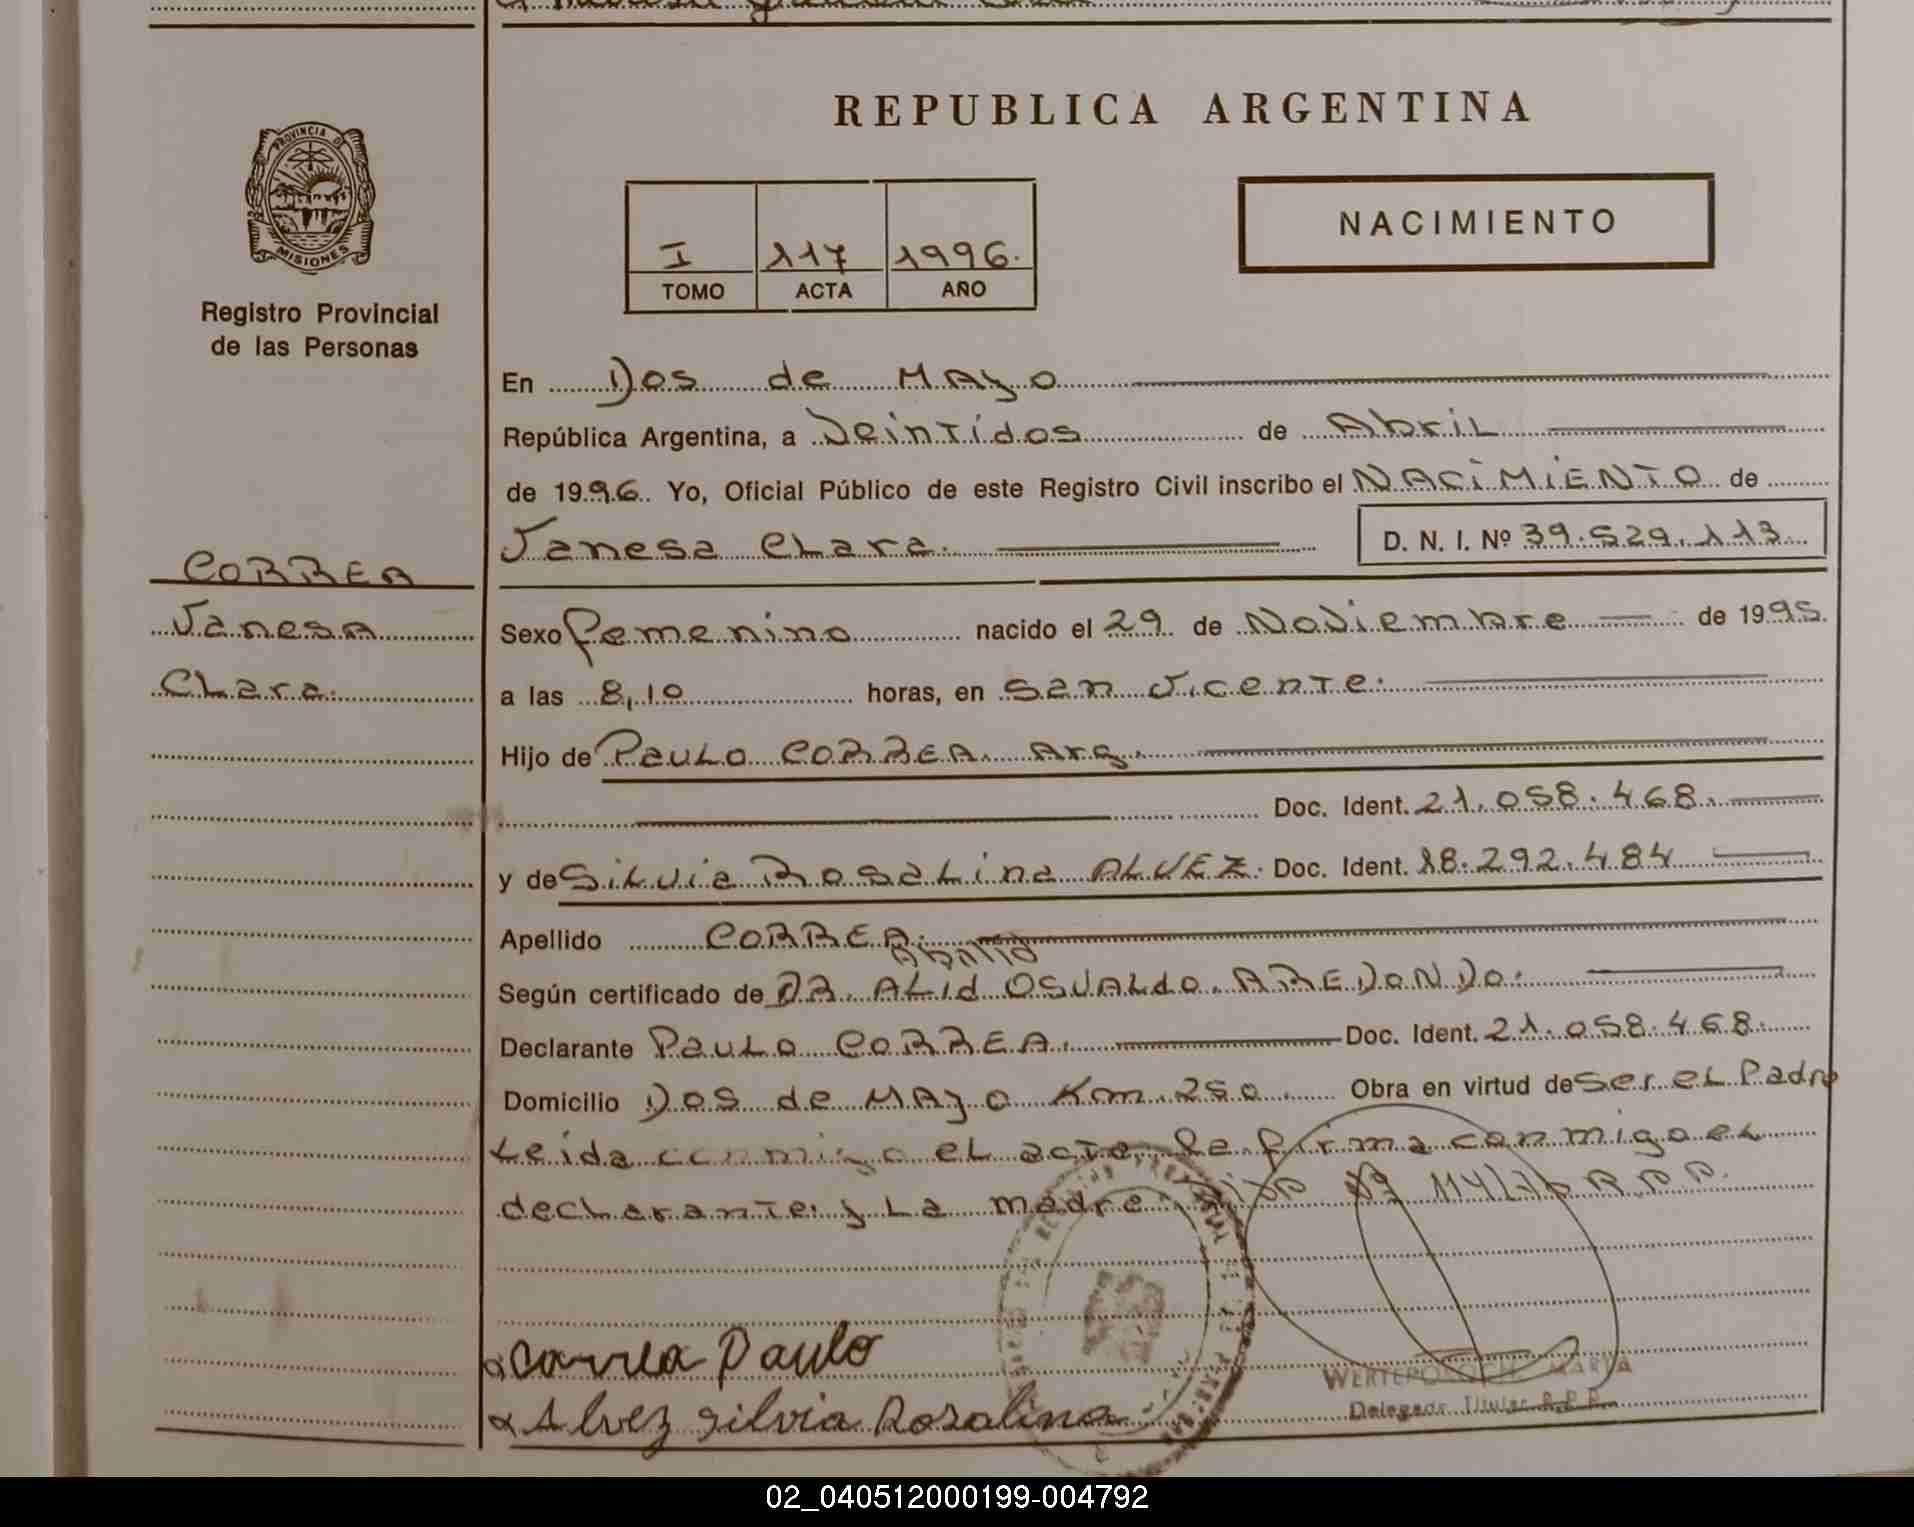 REPUBLICA ARGENTINA
PROVINCIA DE
MISIONES
Registro Provincial
de las Personas
I 117 1996.
TOMO ACTA AÑO
NACIMIENTO
En Dos de Mayo
República Argentina, a Veintidos de Abril
de 1996. Yo, Oficial Público de este Registro Civil inscribo el NACIMIENTO de
Vanesa Clara. D. N. I. Nº 39.529.113
CORREA
Vanesa
Clara.
Sexo femenino nacido el 29 de Noviembre de 1995.
a las 8,10 horas, en San Vicente.
Hijo de Paulo CORREA. Arg.
Doc. Ident. 21.058.468.
y de Silvia Rosalina ALVEZ. Doc. Ident. 18.292.484
Apellido CORREA.
Según certificado de DR. ALid OSVALdo. AREDONDO.
Declarante Paulo CORREA. Doc. Ident. 21.058.468.
Domicilio Dos de Mayo Km. 250. Obra en virtud de ser el Padre
Leída conmigo el acta, la firma conmigo el
declarante y La madre.
Correa Paulo
Alvez Silvia Rosalina
MARIA
Delegada Titular R.P.P.
02_040512000199-004792